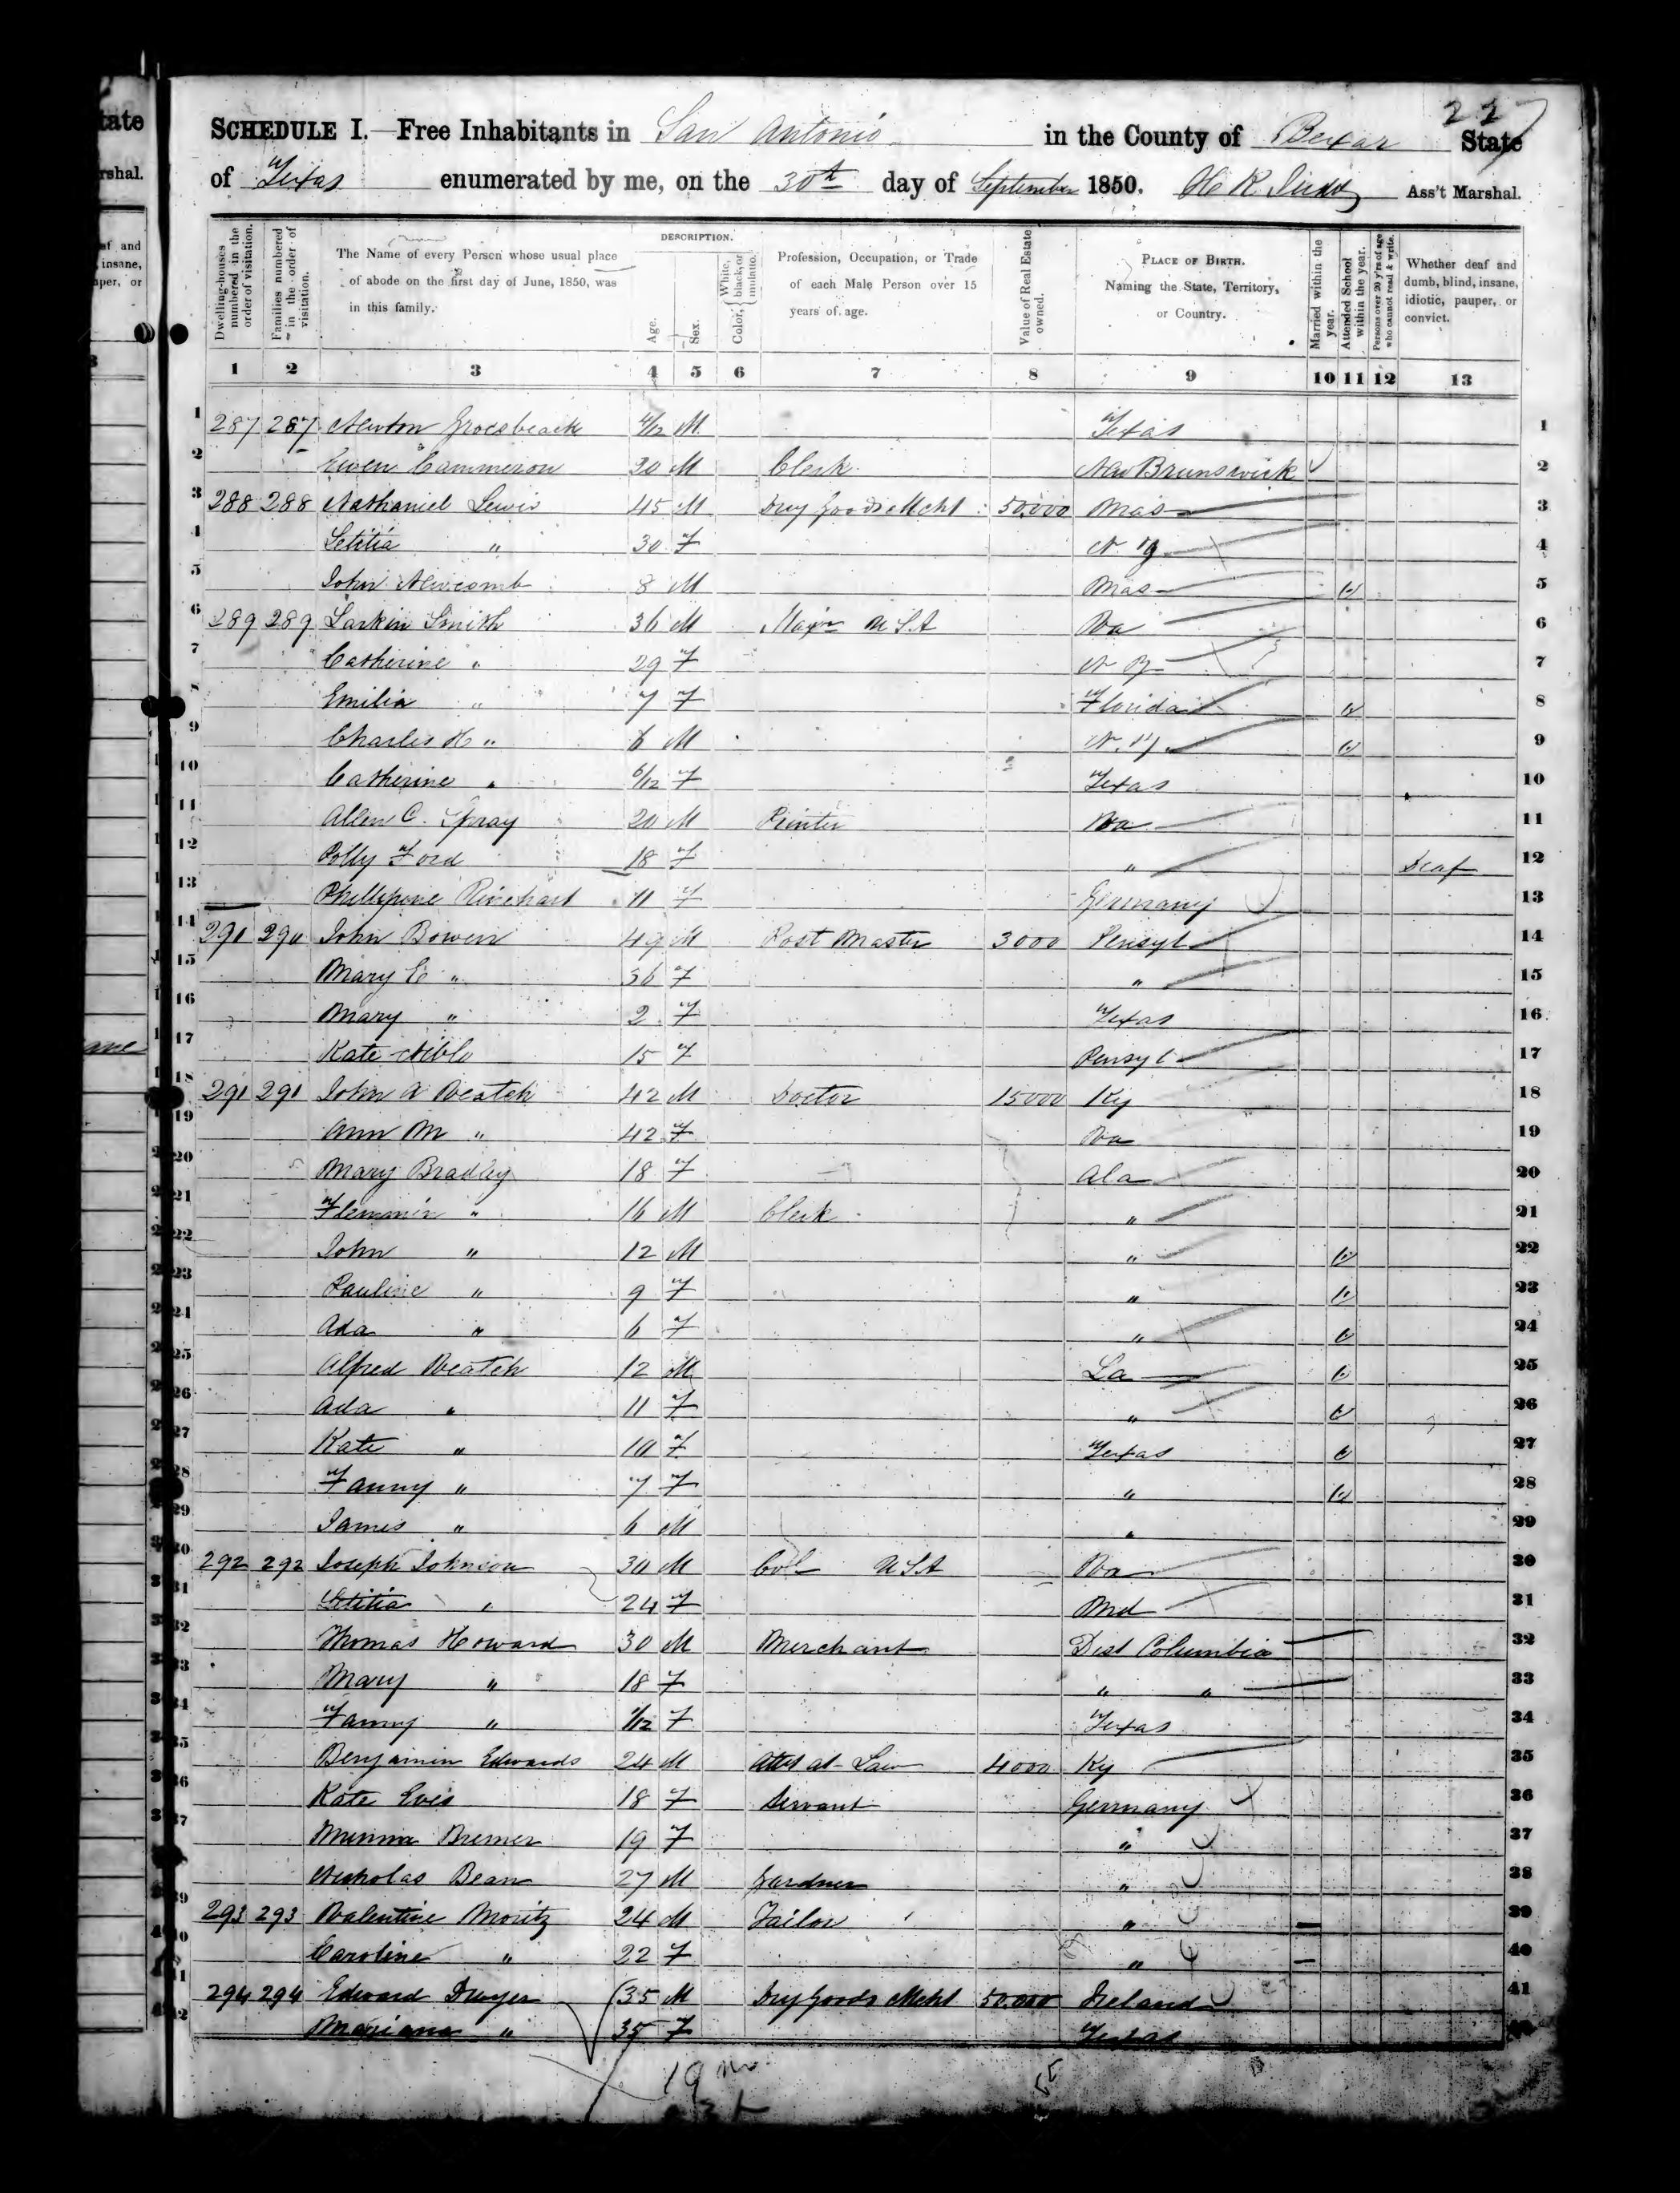 227
SCHEDULE I.—Free Inhabitants in San Antonio in the County of Bexar State
of Texas enumerated by me, on the 30th day of September 1850. Ass't Marshal.
Dwelling-houses numbered in the order of visitation.
Families numbered in the order of visitation.
The Name of every Person whose usual place of abode on the first day of June, 1850, was in this family.
DESCRIPTION.
Age.
Sex.
Color, White, black, or mulatto.
Profession, Occupation, or Trade of each Male Person over 15 years of age.
Value of Real Estate owned.
PLACE OF BIRTH. Naming the State, Territory, or Country.
Married within the year.
Attended School within the year.
Persons over 20 y'rs of age who cannot read & write.
Whether deaf and dumb, blind, insane, idiotic, pauper, or convict.
1 2 3 4 5 6 7 8 9 10 11 12 13
1 287 287 Newton Groesbeack M Texas 1
2 Ewen Cammeron 20 M Clerk New Brunswick 2
3 288 288 Nathaniel Lewis 45 M Dry Goods Mcht 50,000 Mas 3
4 Letitia " 30 F N. Y. 4
5 John Newcomb 8 M Mas 5
6 289 289 Larkin Smith 36 M Major U S A Va 6
7 Catherine " 29 F N Y 7
8 Emilia " 7 F Florida 8
9 Charles H " 6 M N. Y. 9
10 Catherine " 6/12 F Texas 10
11 Allen C. Spray 20 M Printer Va 11
12 Polly Ford 18 F " Deaf 12
13 Phillipone Rinehart 11 F Germany 13
14 291 290 John Bowen 49 M Post Master 3000 Pensyl 14
15 Mary E " 36 F " 15
16 Mary " 2 F Texas 16
17 Kate Niblo 15 F Pensyl 17
18 291 291 John A Veatch 42 M Doctor 15000 Ky 18
19 Ann M " 42 F Va 19
20 Mary Bradley 18 F Ala 20
21 Flemmin " 16 M Clerk " 21
22 John " 12 M " 22
23 Pauline " 9 F " 23
24 Ada " 6 F " 24
25 Alfred Veatch 12 M La 25
26 Ada " 11 F " 26
27 Kate " 10 F Texas 27
28 Fanny " 7 F " 28
29 James " 6 M " 29
30 292 292 Joseph Johnson 30 M Col U S A Va 30
31 Letitia " 24 F Md 31
32 Thomas Howard 30 M Merchant Dist Columbia 32
33 Mary " 18 F " " 33
34 Fanny " 1/12 F Texas 34
35 Benjamin Edwards 24 M Atty at Law 4000 Ky 35
36 Kate Eves 18 F Servant Germany 36
37 Minna Bremer 19 F " 37
38 Nicholas Bean 27 M Gardner " 38
39 293 293 Valentine Moritz 24 M Tailor " 39
40 Caroline " 22 F " 40
41 294 294 Edward Dwyer 35 M Dry Goods Mcht 50.000 Ireland 41
42 Mariana " 35 F Texas
19 m